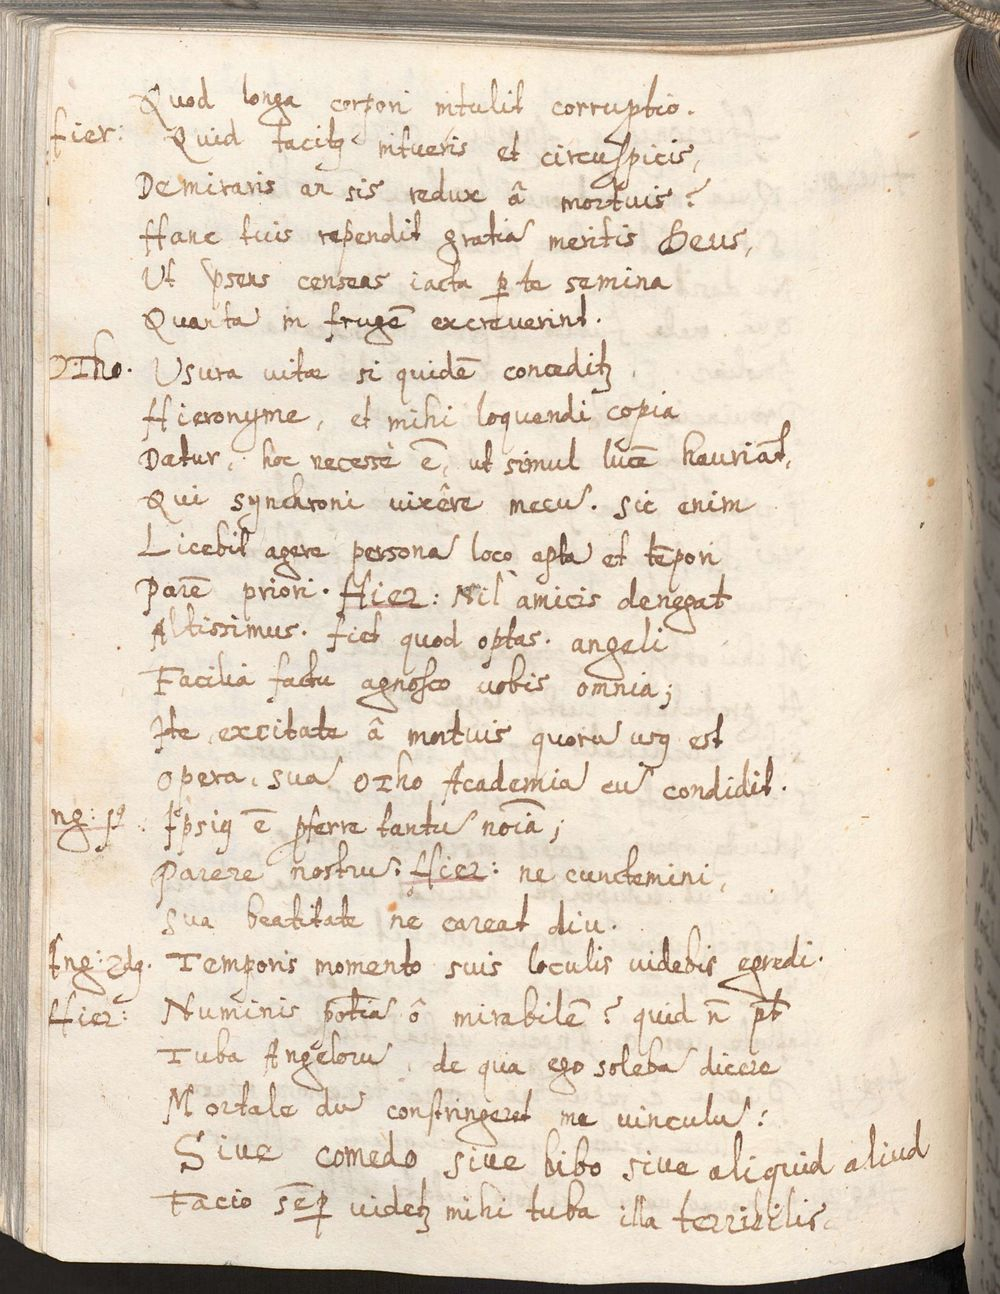 Quod longa corpori intulit corruptio.
Hier: Quid tacitꝫ intueris et circuspicis,
Demiraris an sis redux â mortuis?
Hanc tuis rependit gratiã meritis Deus,
Ut censeas iacta ꝑ te semina
Quanta in frugẽ excreverint.
Otho. Usura vitae si quidẽ conceditꝫ
Hieronyme, et mihi loquendi copia
Datur, hoc necesse ẽ, ut simul lucẽ hauriãt,
Qui synchroni vixêre mecũ. Sic enim
Licebit agere personã loco aptã et tẽpori
Parẽ priori. Hier: Nil amicis denegat
Altissimus. fiet quod optas. angeli
Facilia factu agnosco vobis omnia;
Ite, excitate â mortuis quorũ usꝫ est
Opera, suã Otho Academiã cũ condidit.
ng: Ipsiꝫ ẽ pferre tantũ noĩa;
Parere nostrũ. Hier: ne cunctemini,
Sua beatitate ne careat diu.
Ang: 2dꝫ. Temporis momento suis loculis videbis egredi.
Hier: Numinis potĩã ô mirabilẽ? quid ñ pt̃
Tuba Angelorũ, de qua ego solebã dicere
Mortale dũ constringeret me vinculũ?
Sive comedo sive bibo sive aliquid aliud
Facio sẽꝑ videtꝫ mihi tuba illa terribilis